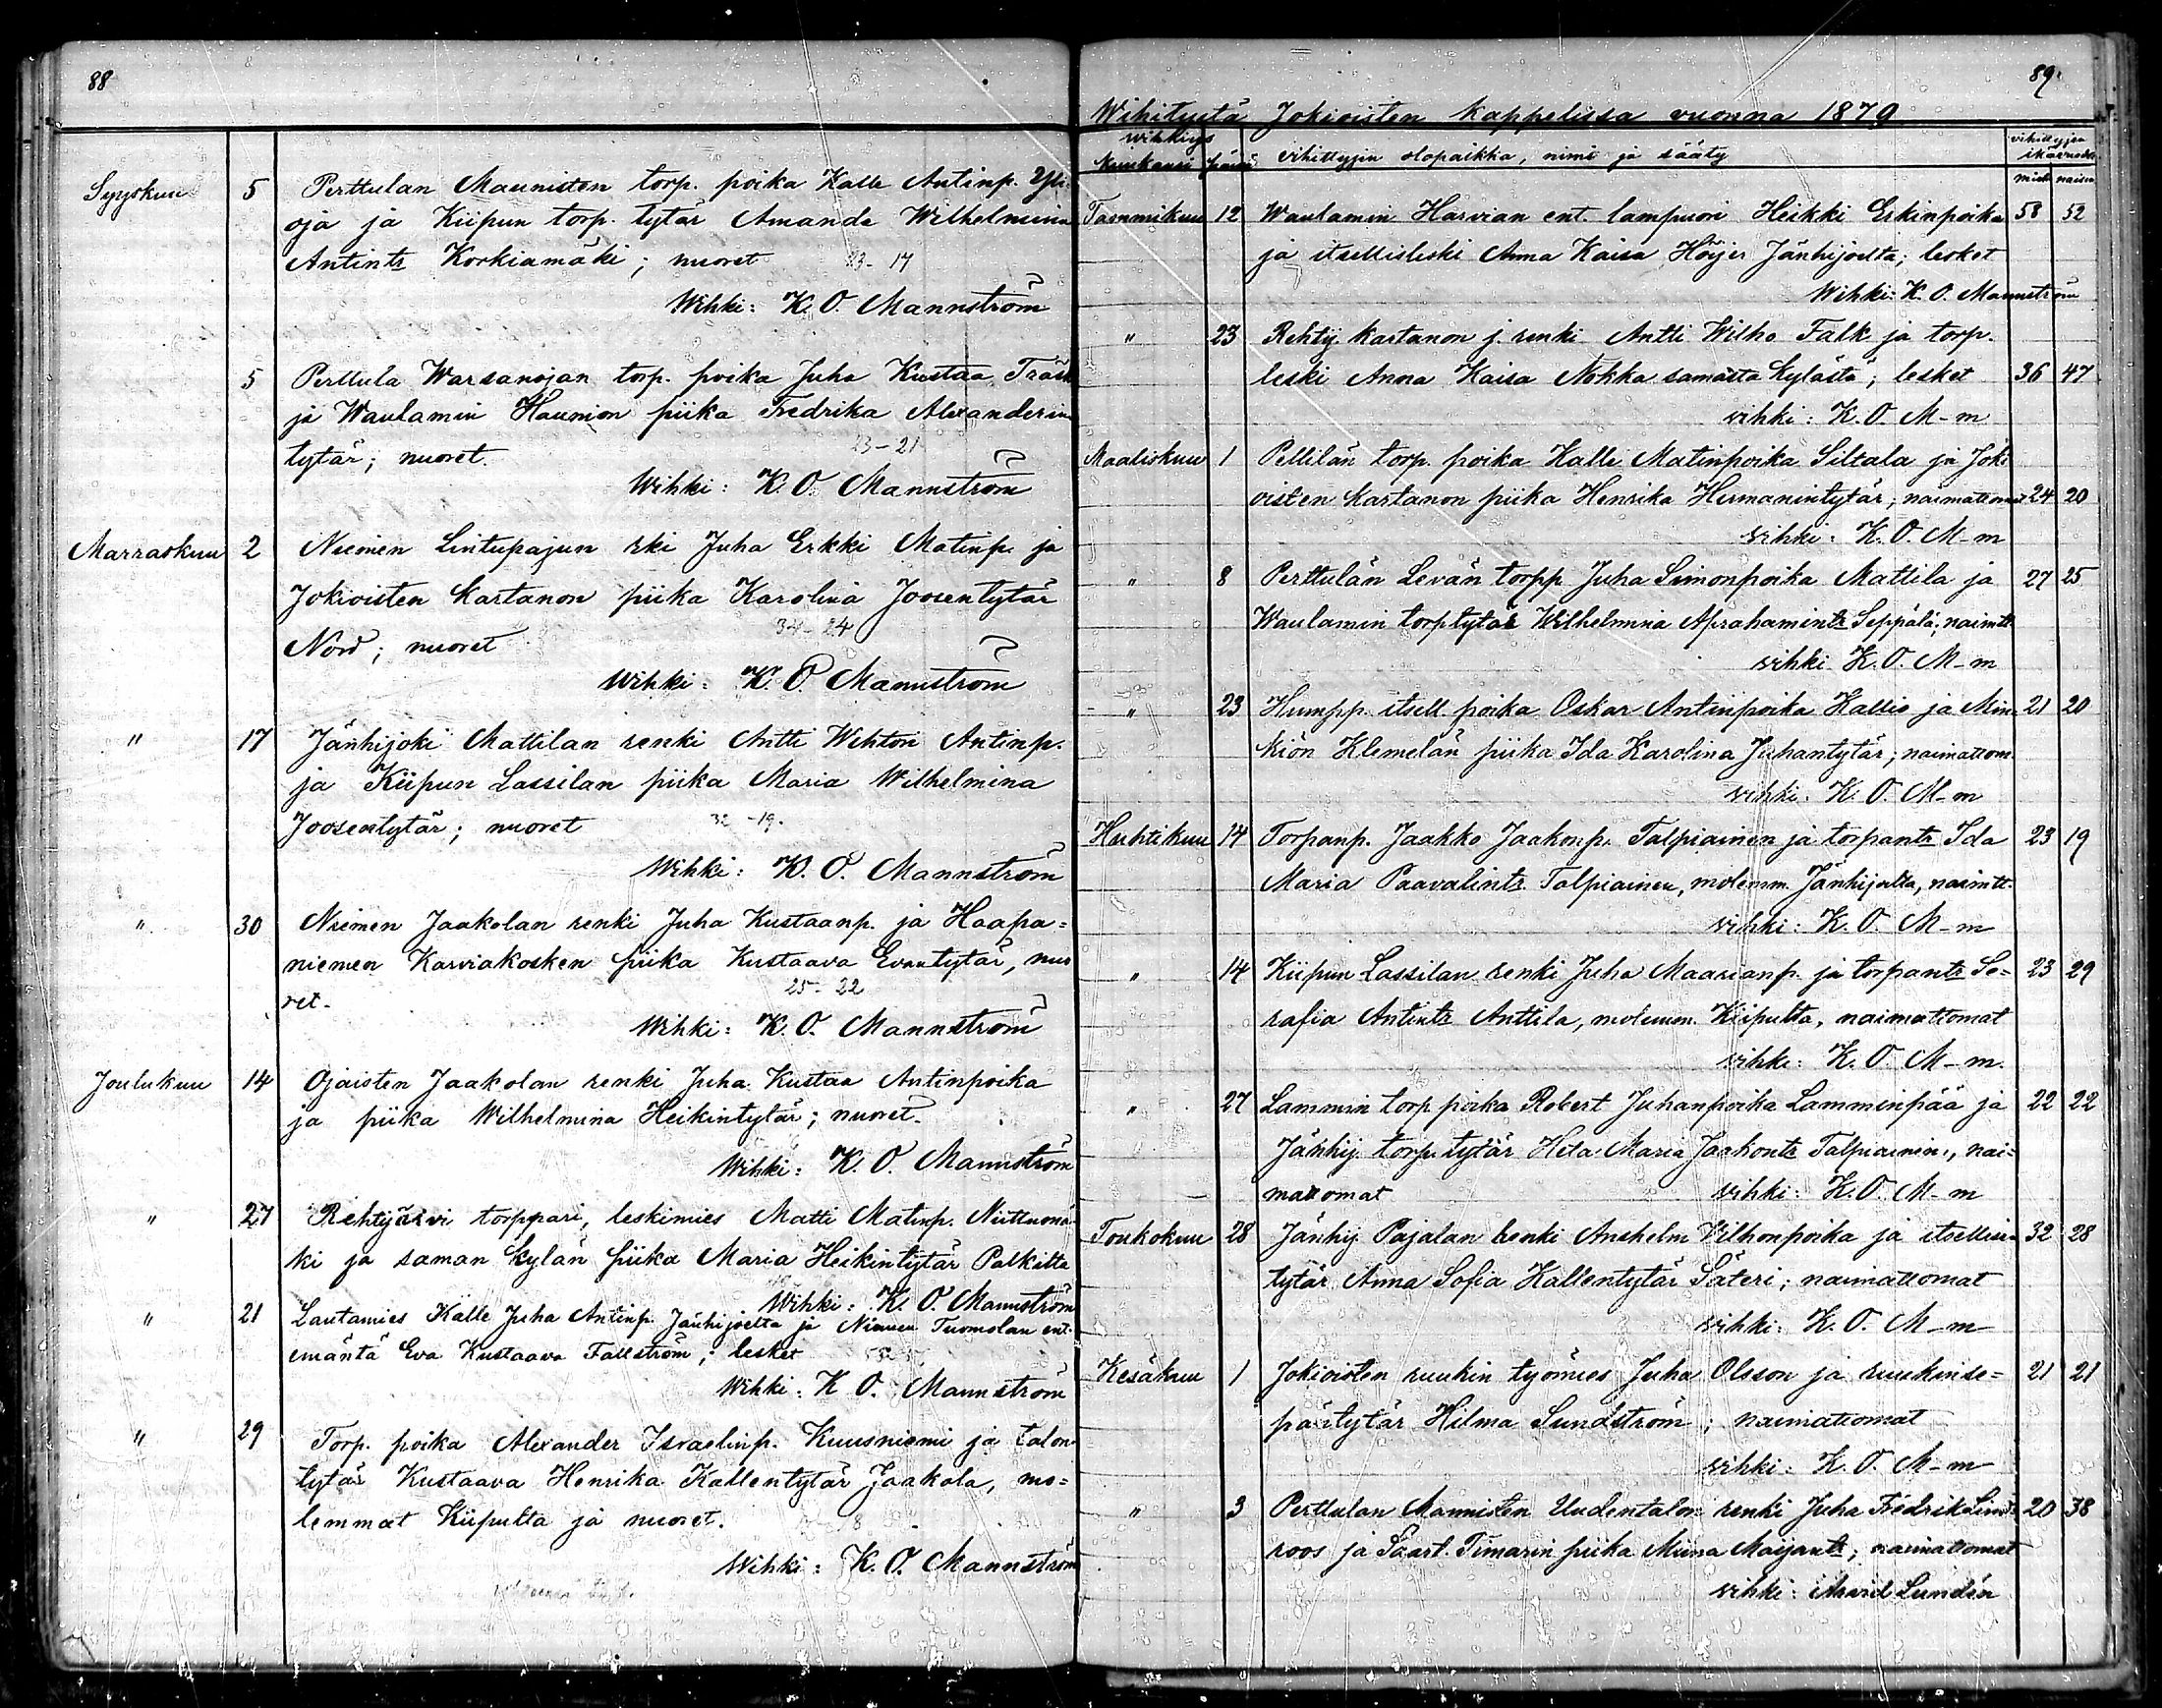 88
Syyskuu 5 Perttulan Mauniston torp. poika Kalle Antinp. Yli-
oja ja Kiipun torp. tytär Amanda Wilhelmiina
Antintr Korkiamäki; nuoret 23-17
Wihki: K. O. Mannström
5 Perttula Warsanojan torp. poika Juha Kustaa Träsk
ja Waulamin Haunion piika Fredrika Alexanderin
tytär; nuoret. 23-21
Wihki: K. O. Mannström
Marraskuu 2 Niemen Lintupajun rki Juha Erkki Matinp. ja
Jokioisten kartanon piika Karolina Joosentytär
Nord; nuoret 34-24
Wihki: K. O. Mannström
" 17 Jänhijoki Mattilan renki Antti Wihtori Antinp.
ja Kiipun Lassilan piika Maria Wilhelmina
Joosentytär; nuoret 32-19.
Wihki: K. O. Mannström
" 30 Niemen Jaakolan renki Juha Kustaanp. ja Haapa=
niemen Karviakosken piika Kustaava Evantytär, nuo
ret. 25-22
Wihki: K. O. Mannström
Joulukuu 14 Ojaisten Jaakolan renki Juha Kustaa Antinpoika
ja piika Wilhelmina Heikintytär; nuoret.
Wihki: K. O. Mannström
" 27 Rehtijärvi torppari, leskimies Matti Matinp. Niittumä
ki ja saman kylän piika Maria Heikintytär Palkilta
Wihki: K. O. Mannström
" 21 Lautamies Kalle Juha Antinp. Jänhijoelta ja Niemen Tuomolan ent.
emäntä Eva Kustaava Fallström; lesket
Wihki: K O. Mannström
" 29 Torp. poika Alexander Israelinp. Kuusniemi ja talon
tytär Kustaava Henrika Kallentytär Jaakola, mo=
lemmat Kiipulta ja nuoret.
Wihki: K. O. Mannström
89.
Wihityistä Jokioisten kappelissa vuonna 1879
wihkiys vihittyjen
Kuukausi päivä vihittyjin olopaikka, nimi ja sääty ikävuodet
mieh. naisen
Tammikuu 12 Waulamin Harvian ent. lampuori Heikki Erkinpoika 58 52
ja itsellisleski Anna Kaisa Höijer Jänhijoelta; lesket
Wihki: K. O. Mannström
" 23 Rehtij. kartanon j. renki Antti Wilho Falk ja torp.
leski Anna Kaisa Nokka samasta kylästä; lesket 36 47
vihki: K. O. M-m
Maaliskuu 1 Pellilän torp. poika Kalle Matinpoika Siltala ja Joki
oisten kartanon piika Henrika Hermanintytär; naimattomat 24 20
vihki: K. O. M-m
" 8 Perttulän Levän torpp. Juha Simonpoika Mattila ja 27 25
Waulamin torptytär Wilhelmina Aprahamintr Seppälä; naimtt.
vihki K. O. M-m
" 23 Humpp. itsell. poika Oskar Antinpoika Kallio ja Min- 21 20
kiön Klemelän piika Ida Karolina Juhantytär; naimattom.
vihki: K. O. M-m
Huhtikuu 14 Torpanp. Jaakko Jaakonp. Talpiainen ja torpantr Ida 23 19
Maria Paavalintr Talpiainen, molemm. Jänhijoelta, naimtt.
vihki: K. O. M-m
" 14 Kiipun Lassilan renki Juha Maarianp. ja torpantr Se= 23 29
rafia Antintr Anttila, molemm. Kiipulta, naimattomat
vihki: K. O. M-m.
" 27 Lammin torp poika Robert Juhanpoika Lamminpää ja 22 22
Jänhij. torp. tytär Heta Maria Jaakontr Talpiainen, nai=
mattomat vihki: K. O. M-m
Toukokuu 28 Jänhij. Pajalan renki Anshelm Vilhonpoika ja itsellisen 32 28
tytär Anna Sofia Kallentytär Säteri; naimattomat
vihki: K. O. M-m
Kesäkuu 1 Jokioisten ruukin työmies Juha Olsson ja ruukinse= 21 21
päntytär Hilma Sundström; naimattomat
vihki: K. O. M-m
" 3 Perttulan Manniston Uudentalon renki Juha Fredrik Lind= 20 38
roos ja Saart. Timarin piika Miina Maijantr; naimattomat
vihki: Arvid Lundén